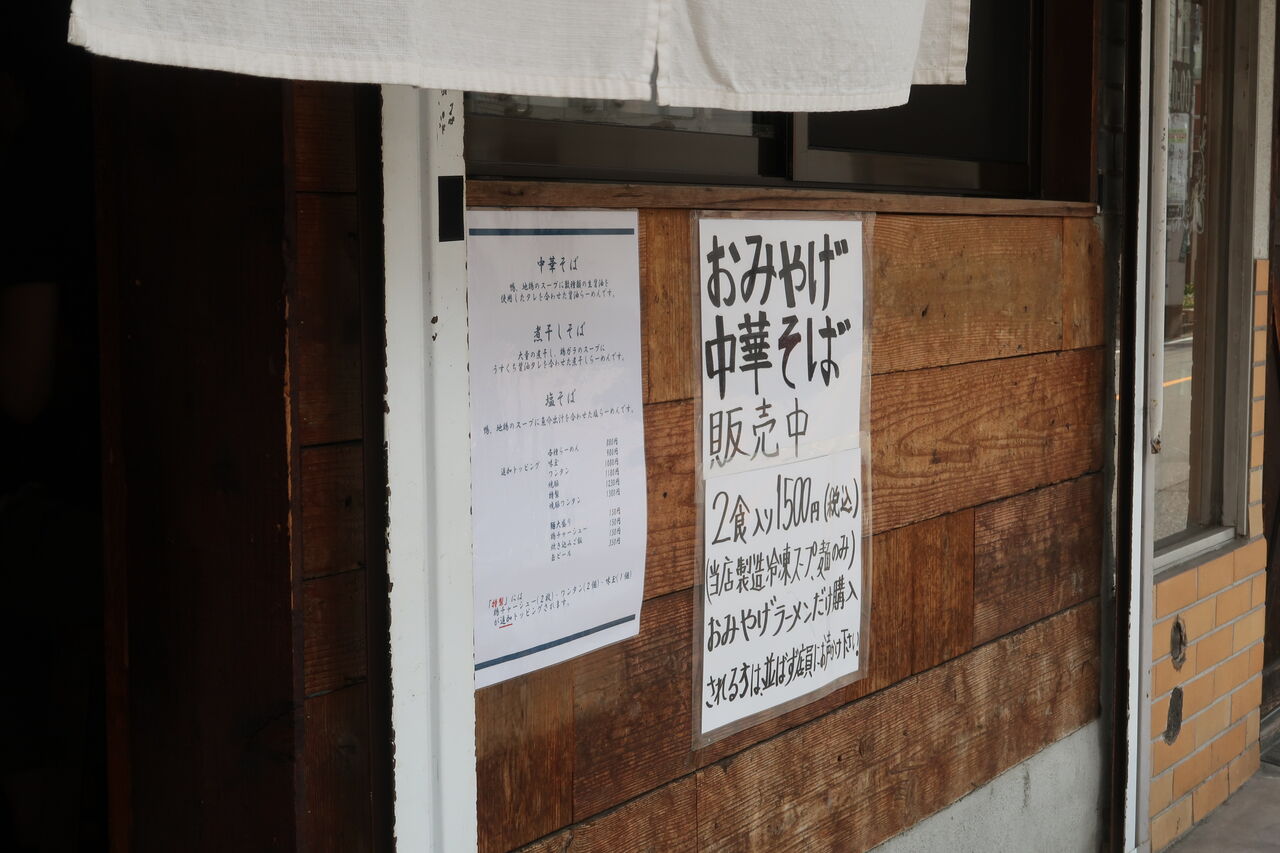 中華そば
鴨、地鶏のスープに数種類の生醤油を
使用したタレを合わせた醤油らーめんです。
煮干しそば
大量の煮干し、鶏ガラのスープに
うすくち醤油タレを合わせた煮干しらーめんです。
塩そば
鴨、地鶏のスープに魚介出汁を合わせた塩らーめんです。
各種らーめん 800円
追加トッピング 味玉 900円
ワンタン 1000円
焼豚 1100円
特製 1250円
焼豚ワンタン 1300円
麺大盛り 150円
鶏チャーシュー 150円
炊き込みご飯 150円
缶ビール 350円
「特製」には
鶏チャーシュー(2枚)・ワンタン(2個)・味玉(1個)
が追加トッピングされます。
おみやげ
中華そば
販売中
2食入り1500円(税込)
(当店製造冷凍スープ、麺のみ)
おみやげラーメンだけ購入
される方は、並ばず店員にお声かけ下さい!